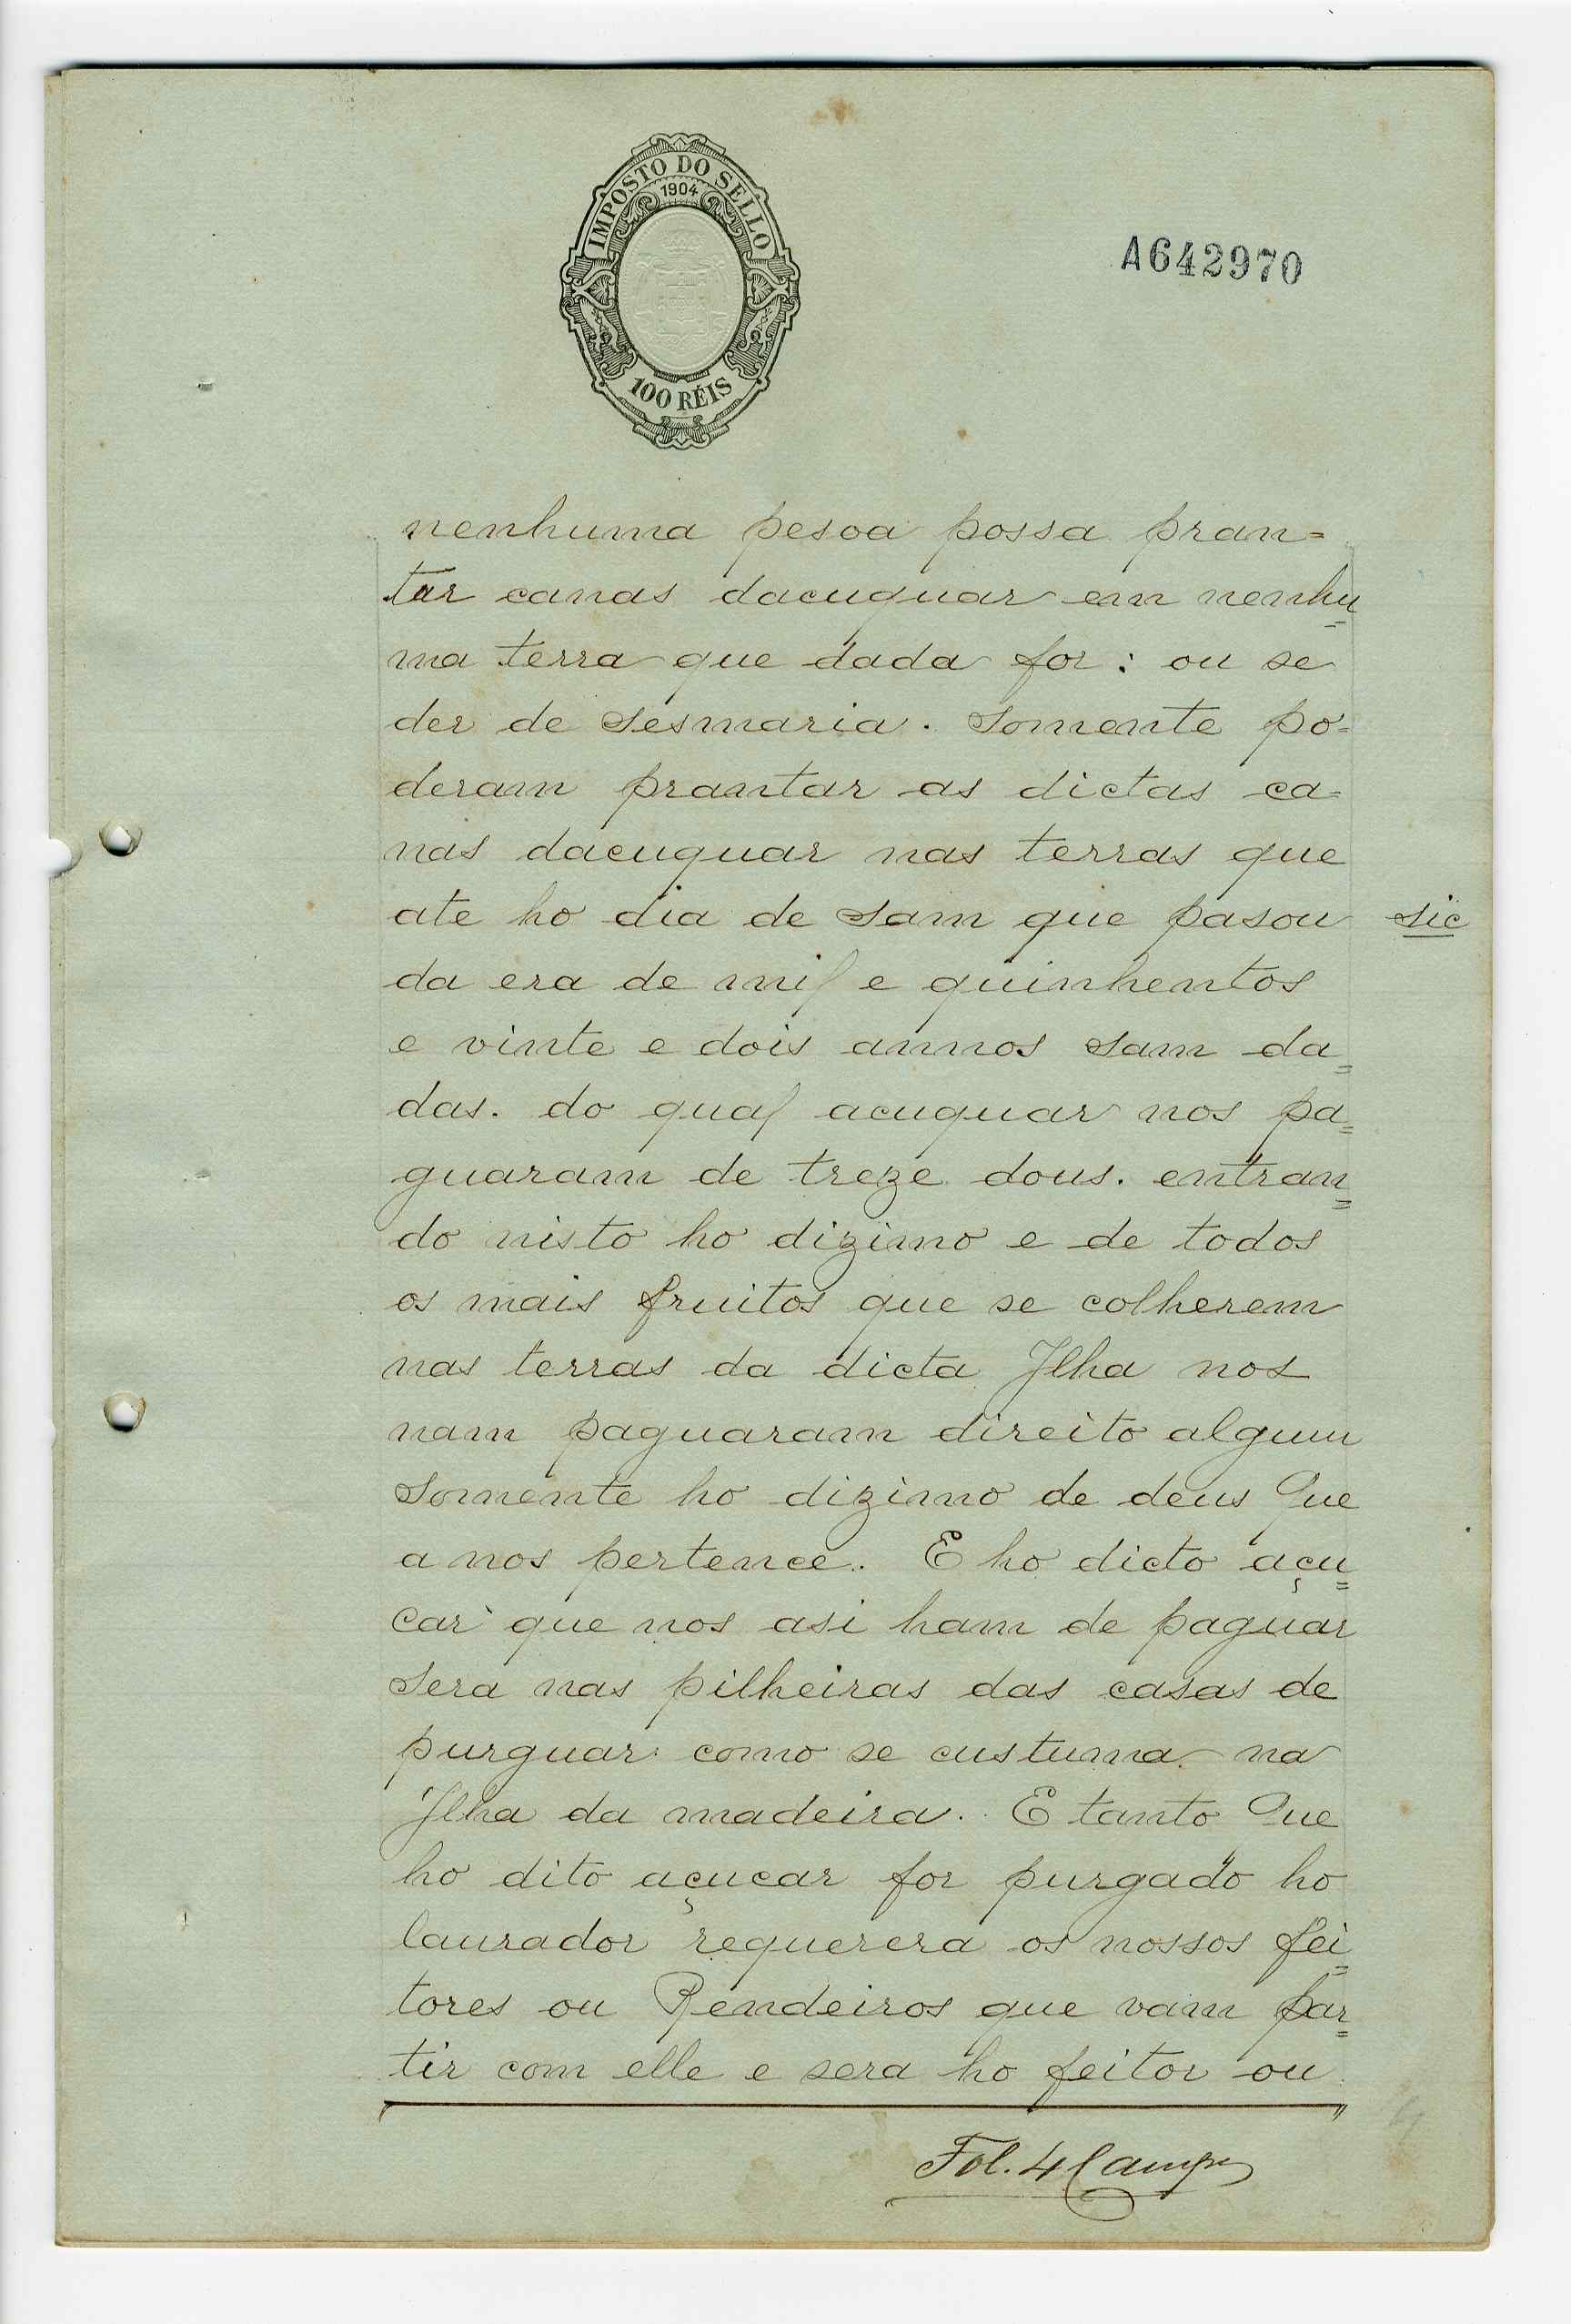 IMPOSTO DO SELLO
1904
100 RÉIS
A642970
nenhuma pesoa possa pran=
tar canas dacuquar em nenhu=
ma terra que dada for: ou se
der de sesmaria. Somente po=
deram prantar as dictas ca=
nas dacuquar nas terras que
ate ho dia de Sam que pasou sic
da era de mil e quinhentos
e vinte e dois annos sam da=
das. do qual acuquar nos pa=
guaram de treze dous. entran=
do nisto ho dizimo e de todos
os mais fruitos que se colherem
nas terras da dicta Ilha nos
nam paguaram direito algum
Somente ho dizimo de deus Que
a nos pertence. E ho dicto açu=
car que nos asi ham de paguar
Sera nas pilheiras das casas de
purguar como se custuma na
Ilha da madeira. E tanto Que
ho dito açucar for purgado ho
laurador requerera os nossos fei=
tores ou Rendeiros que vam par=
tir com elle e sera ho feitor ou
Fol. 4